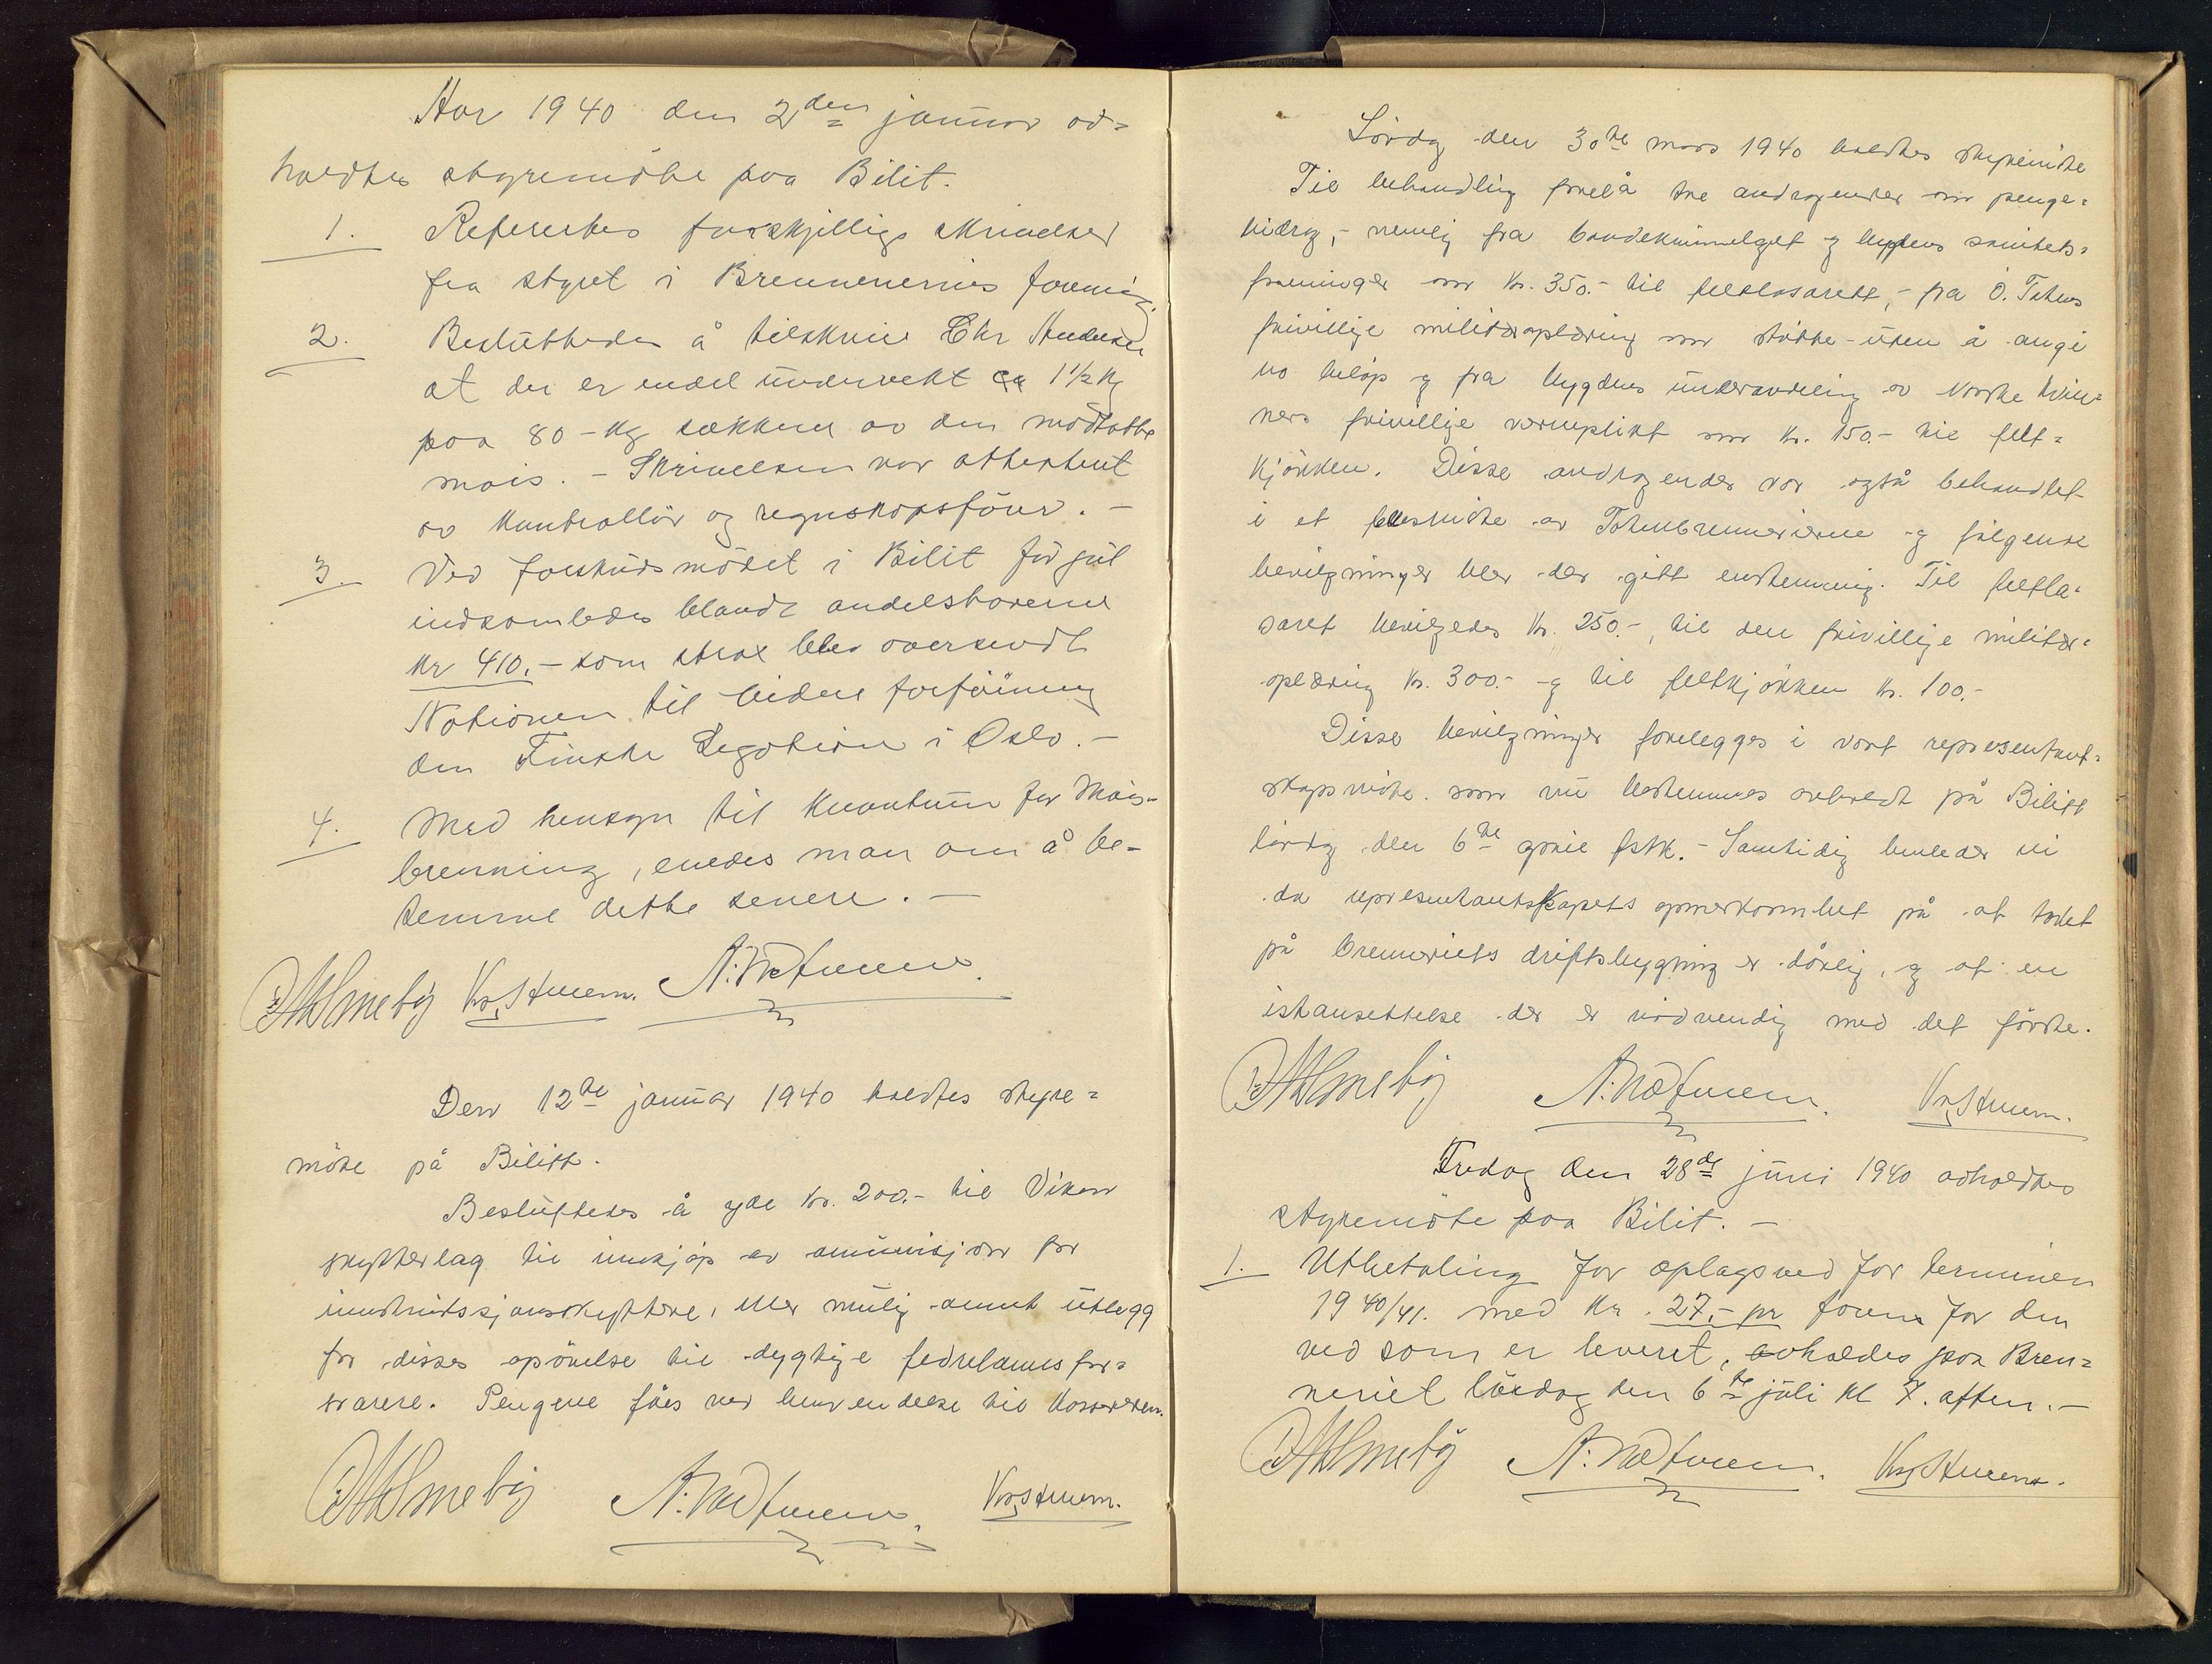 Aar 1940 den 2den januar av=
holdtes styremöte paa Bilit.
1. Refertes forskjellige skrivelser
fra styret i Brennerienes forening.
2. Besluttedes å tilskrive Chr Andersen
at der er endel undervekt ca 1½ kg
paa 80-kg sækkene av den modtatte
mais. - Skrivelsen var attestert
av kontrollör og regnskapsförer. -
3. Ved forskudsmötet i Bilit för jul
indsamledes blandt andelshaverne
kr 410.- som strax blev oversendt
Nationen til videre forföining
den Finske Legation i Oslo. -
4. Med hensyn til kvantum for Mais-
brenning, enedes man om å be-
stemme dette senere. -
Den 12te januar 1940 holdtes styre=
möte på Bilitt.
Besluttedes å yde kr. 200.- til Viken
skytterlag til innkjöp av amunisjon for
instruksjonsskyttere, eller mulig annet utlegg
for disses opövelse til dygtige fedrelandsfor=
svarere. Pengene fåes ved henvendelse til kassereren.
Lördag den 30te mars 1940 holdtes styremöte
Til behandling forelå tre andragender om penge=
bidrag, - nemlig fra bondekvinnelaget og bygdens sanitets=
foreninger om kr. 350.- til feltlasarett, - fra Ö. Totens
frivillige militæroplæring om stötte - uten å angi
no belöp og fra bygdens underavdeling av Norske kvin=
ners frivillige verneplikt om kr. 150.- til felt=
kjökken. Disse andragender var også behandlet
i et fellesmöte av Totenbrenneriene og fölgende
bevilgninger blev der gitt enstemmig. Til feltla=
saret bevilgedes kr. 250.-, til den frivillige militær=
oplæring kr. 300.- og til feltkjökken kr. 100.-
Disse bevilgninger forelegges i vort representant=
skapsmöte som nu bestemmes avholdt på Bilitt
lördag den 6te april fstk. - Samtidig henleder vi
da representantskapets opmerksomhet på at taket
på brenneriets driftsbygning er dårlig, og at en
istansettelse der er nödvendig med det förste.
Fredag den 28de juni 1940 avholdtes
styremöte paa Bilit. -
1. Utbetaling for oplagsved for terminen
1940/41. med kr. 27.- pr favn for den
ved som er leveret, avholdes paa Bren=
neriet lördag den 6te juli kl 7. aften. -